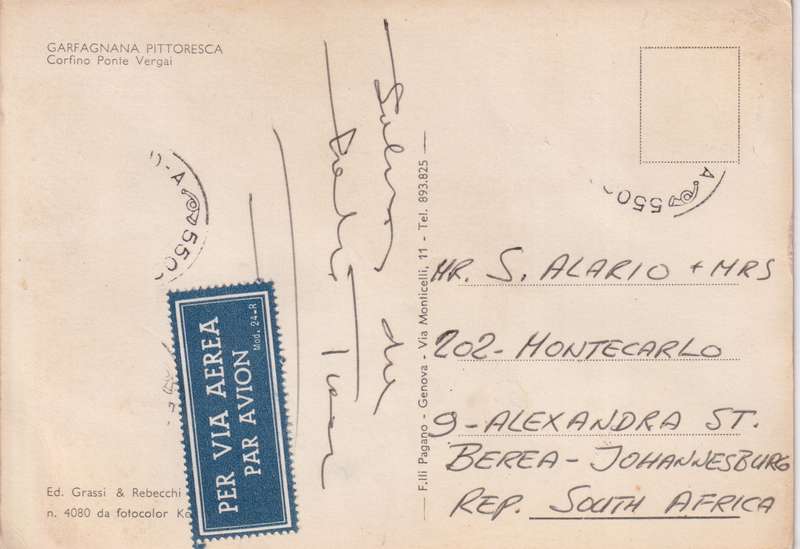 GARFAGNANA PITTORESCA
Corfino Ponte Vergai
MR. S. ALARIO + MRS
202 - MONTECARLO
9 - ALEXANDRA ST.
BEREA - JOHANNESBURG
REP. SOUTH AFRICA
F.lli Pagano - Genova - Via Monticelli, 11 - Tel. 893.825
PER VIA AEREA
PAR AVION
Mod. 24-R
A
550
O-A
550
Ed. Grassi & Rebecchi
n. 4080 da fotocolor